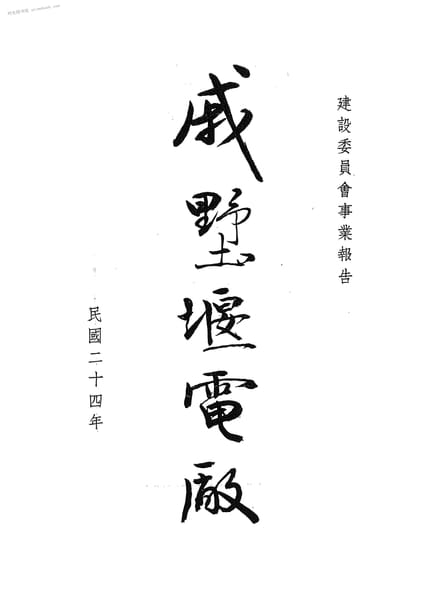 建設委員會事業報告
戚墅堰電廠
民國二十四年